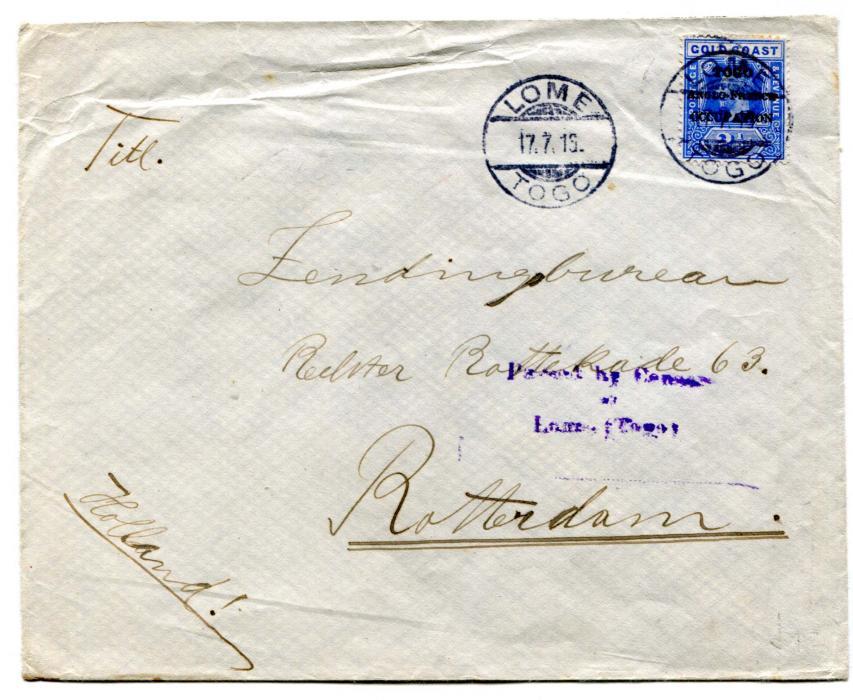 GOLD COAST
POSTAGE & REVENUE
TOGO
ANGLO-FRENCH
OCCUPATION
LOME
17.7.16.
TOGO
LOME
TOGO
Titl.
Zendingbureau
Rechter Rottekade 63.
Passed by Censor
at
Lome (Togo)
Rotterdam.
Holland!